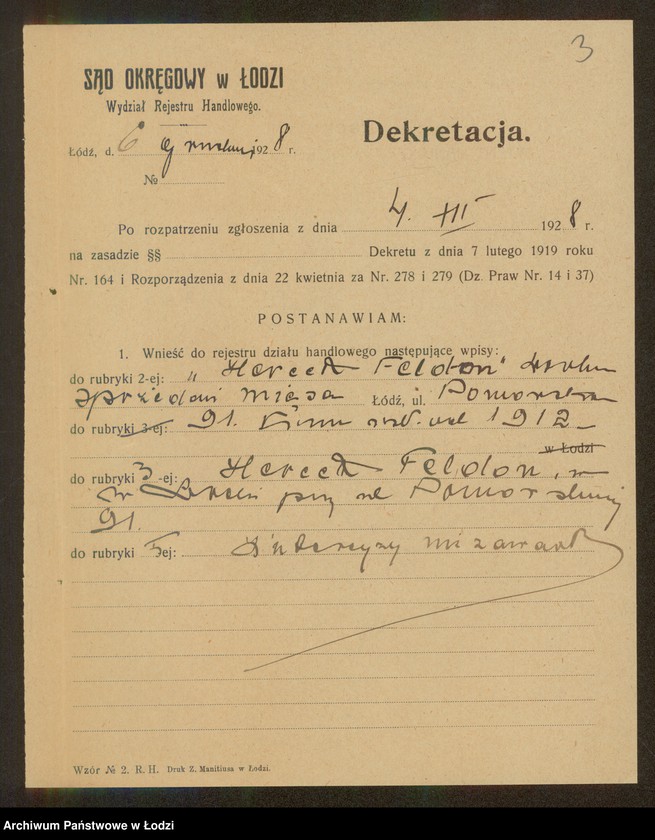 3
SĄD OKRĘGOWY w ŁODZI
Wydział Rejestru Handlowego.
Dekretacja.
Łódź, d. 6 grudnia 1928 r.
№
Po rozpatrzeniu zgłoszenia z dnia 4. XII 1928 r.
na zasadzie §§ Dekretu z dnia 7 lutego 1919 roku
Nr. 164 i Rozporządzenia z dnia 22 kwietnia za Nr. 278 i 279 (Dz. Praw Nr. 14 i 37)
POSTANAWIAM:
1. Wnieść do rejestru działu handlowego następujące wpisy:
do rubryki 2-ej: „Hercek Feldon"
sprzedaż mięsa Łódź, ul. Pomorska
do rubryki 3-ej: 91. Firma istn. od 1912
w Łodzi
do rubryki 3-ej: Hercek Feldon,
w Łodzi przy ul. Pomorskiej
91.
do rubryki 5ej: Intercyzy nie zawarł
Wzór № 2. R. H. Druk Z. Manitiusa w Łodzi.
Archiwum Państwowe w Łodzi